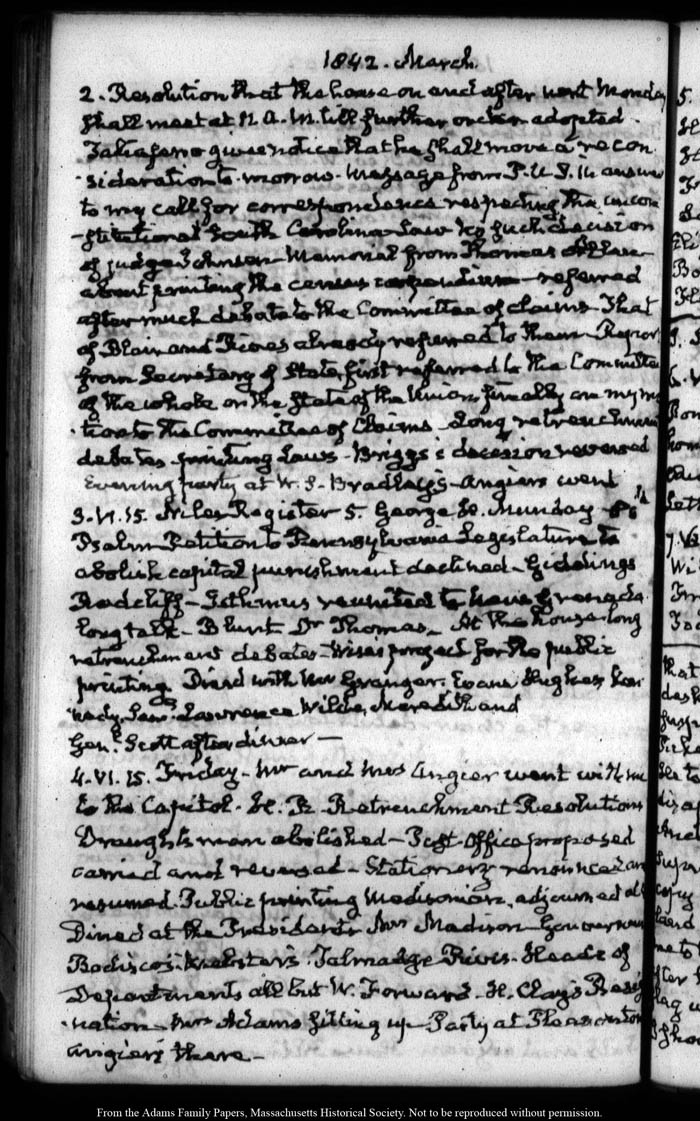 1842. March.
2. Resolution that the house on and after next Monday
shall meet at 11 A.M. till further order adopted.
Taliaferro gives notice that he shall move a recon
sideration to-morrow. Message from P.U.S. in answer
to my call for correspondence respecting the uncon
stitutional South Carolina Law No such decision
of judge Johnson. Memorial from Thomas Allen
about printing the census compendium - referred
after much debate to the Committee of claims That
of Blair and Rives already referred to them - Report
from Secretary of State first referred to the Committee
of the whole on the State of the Union finally on my mo
tion to the Committee of Claims - Long retrenchment
debates printing Laws - Briggs's decision reversed
Evening party at W. S. Bradley's - Angiers went
3. VI. 15. Niles Register 5. George H. Munday - 
Psalm Petition to Pennsylvania Legislature to
abolish capital punishment declined - Giddings
Radcliff - Isthmus reunited to New Grenada
long talk - Blunt Dr Thomas - At the house long
retrenchment debates - Wise's project for the public
printing Dined with Mr Granger. Evans Hughes Ken
nedy. Lawrence Wilde, Meredith and
Genl. Scott after dinner -
4. VI. 15. Friday - Mr and Mrs Angier went with me
to the Capitol. H. R. Retrenchment Resolutions
Draughtsman abolished - Post-Office proposed
carried and reversed - Stationery renounced an
resumed. Public printing Madisonian, adjourned
Dined at the Presidents Mrs Madison
Bodisco's. Webster's. Talmadge Rives. Heads of
Departments all but W. Forward. H. Clay's Resig
nation - Mrs Adams fitting up - Party at Pleasonton
Angiers there -
From the Adams Family Papers, Massachusetts Historical Society. Not to be reproduced without permission.